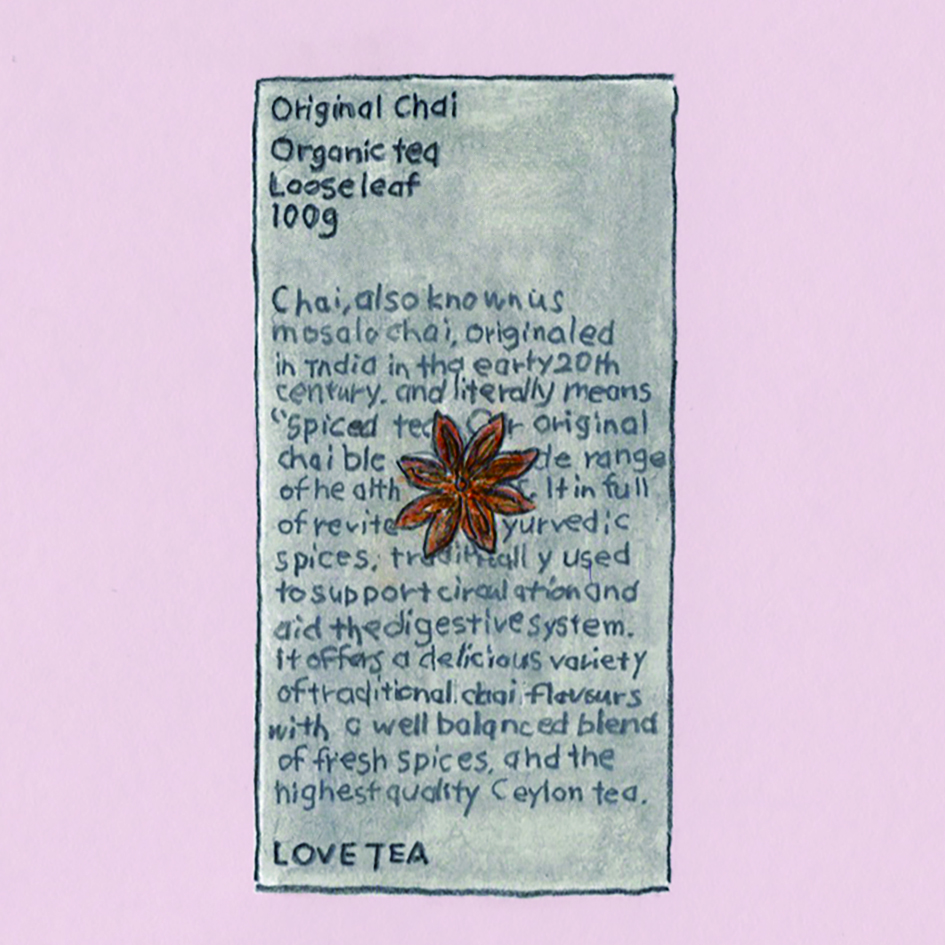 Original Chai
Organic tea
Loose leaf
100g
Chai, also known us
mosala chai, originaled
in India in tha earty 20th
century. and literally means
"Spiced tea Our original
chai ble de range
of health . It in full
of revite yurvedic
spices, traditinally used
to support circulation and
aid the digestive system.
it offers a delicious variety
of traditional chai flavours
with a well balanced blend
of fresh spices, and the
highest quality Ceylon tea.
LOVE TEA